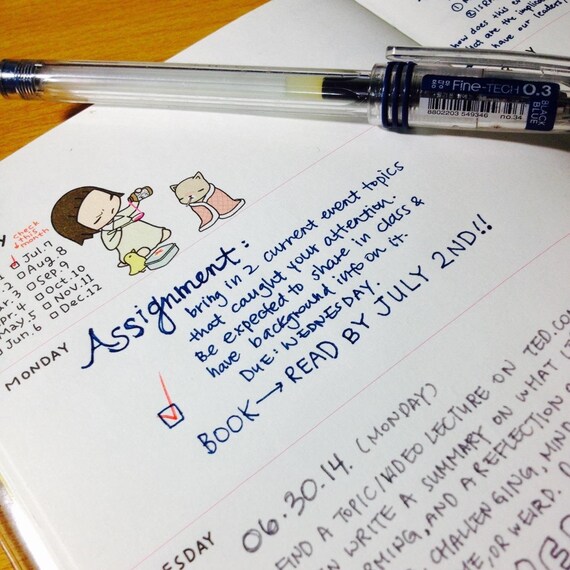 how does this
have our leaders
Fine-TECH 0.3
BLACK
BLUE
8802203 549346 no.34
check
this
month
Jul.7
Aug.8
Sep.9
Oct.10
Nov.11
Dec.12
May.5
Jun.6
MONDAY
Assignment:
bring in 2 current event topics
that caught your attention.
Be expected to share in class &
have background info on it.
DUE: WEDNESDAY.
BOOK → READ BY JULY 2ND!!
06.30.14. (MONDAY)
FIND A TOPIC/VIDEO LECTURE ON TED.COM
WRITE A SUMMARY ON WHAT
AND A REFLECTION
CHALLENGING, MIND
OR WEIRD.